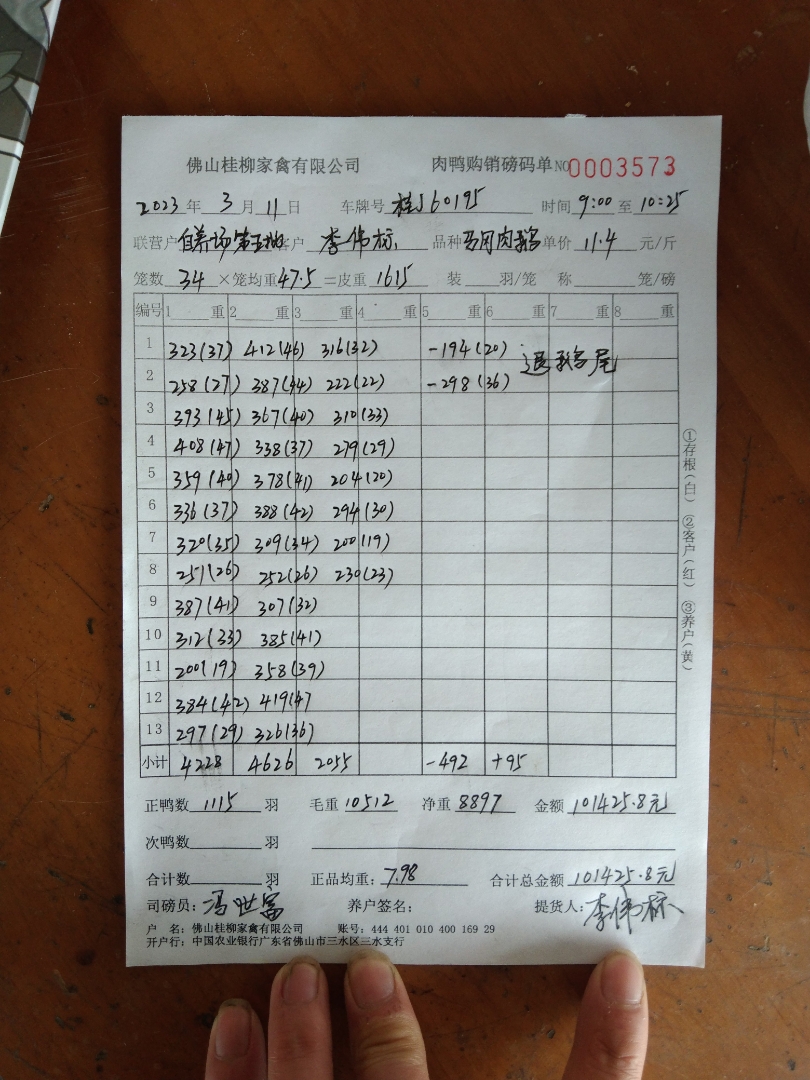 佛山桂柳家禽有限公司 肉鸭购销磅码单 NO 0003573
2023 年 3 月 11 日 车牌号 桂J60195 时间 9:00 至 10:25
联营户 自养场第五批 客户 李伟标 品种 马冈肉鹅 单价 11.4 元/斤
笼数 34 ×笼均重 47.5 =皮重 1615 装 羽/笼 称 笼/磅
编号 1 重 2 重 3 重 4 重 5 重 6 重 7 重 8 重
1 323(37) 412(46) 316(32) -194(20) 退鹅尾
2 258(27) 387(44) 222(22) -298(36)
3 393(45) 367(40) 310(33)
4 408(47) 338(37) 279(29)
5 359(40) 378(41) 204(20)
6 336(37) 388(42) 294(30)
7 320(35) 309(34) 200(19)
8 251(26) 252(26) 230(23)
9 387(41) 307(32)
10 312(33) 385(41)
11 200(19) 358(39)
12 384(42) 419(47
13 297(29) 326(36)
小计 4228 4626 2055 -492 +95
正鸭数 1115 羽 毛重 10512 净重 8897 金额 101425.8元
次鸭数 羽
合计数 羽 正品均重: 7.98 合计总金额 101425.8元
司磅员: 冯世富 养户签名: 提货人: 李伟标
户 名: 佛山桂柳家禽有限公司 账号: 444 401 010 400 169 29
开户行: 中国农业银行广东省佛山市三水区三水支行
①存根(白) ②客户(红) ③养户(黄)